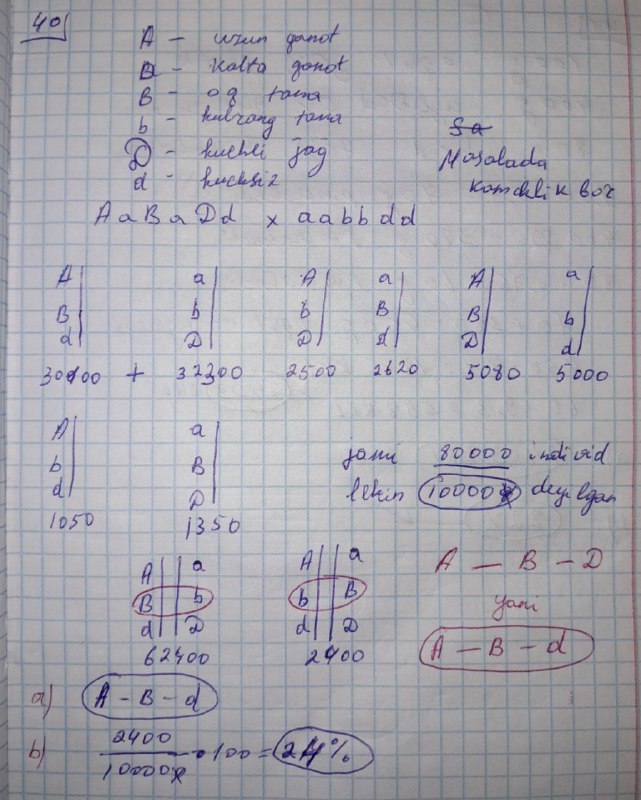 40)
A - uzun qanot
a - kalta qanot
B - oq tana
b - kulrang tana
D - kuchli jag
d - kuchsiz
Masalada
kamchlik bor
AaBaDd x aabbdd
A a A a A a
B b b B B b
d D D d D d
30400 + 32300 2500 2620 5080 5000
A a
b B
d D
1050 1350
jami 80000 individ
lekin 10000 deyilgan
A a A a
B b b B
d D d D
62400 2400
A - B - D
yani
A - B - d
a) A - B - d
b) 2400
10000 · 100 = 24%